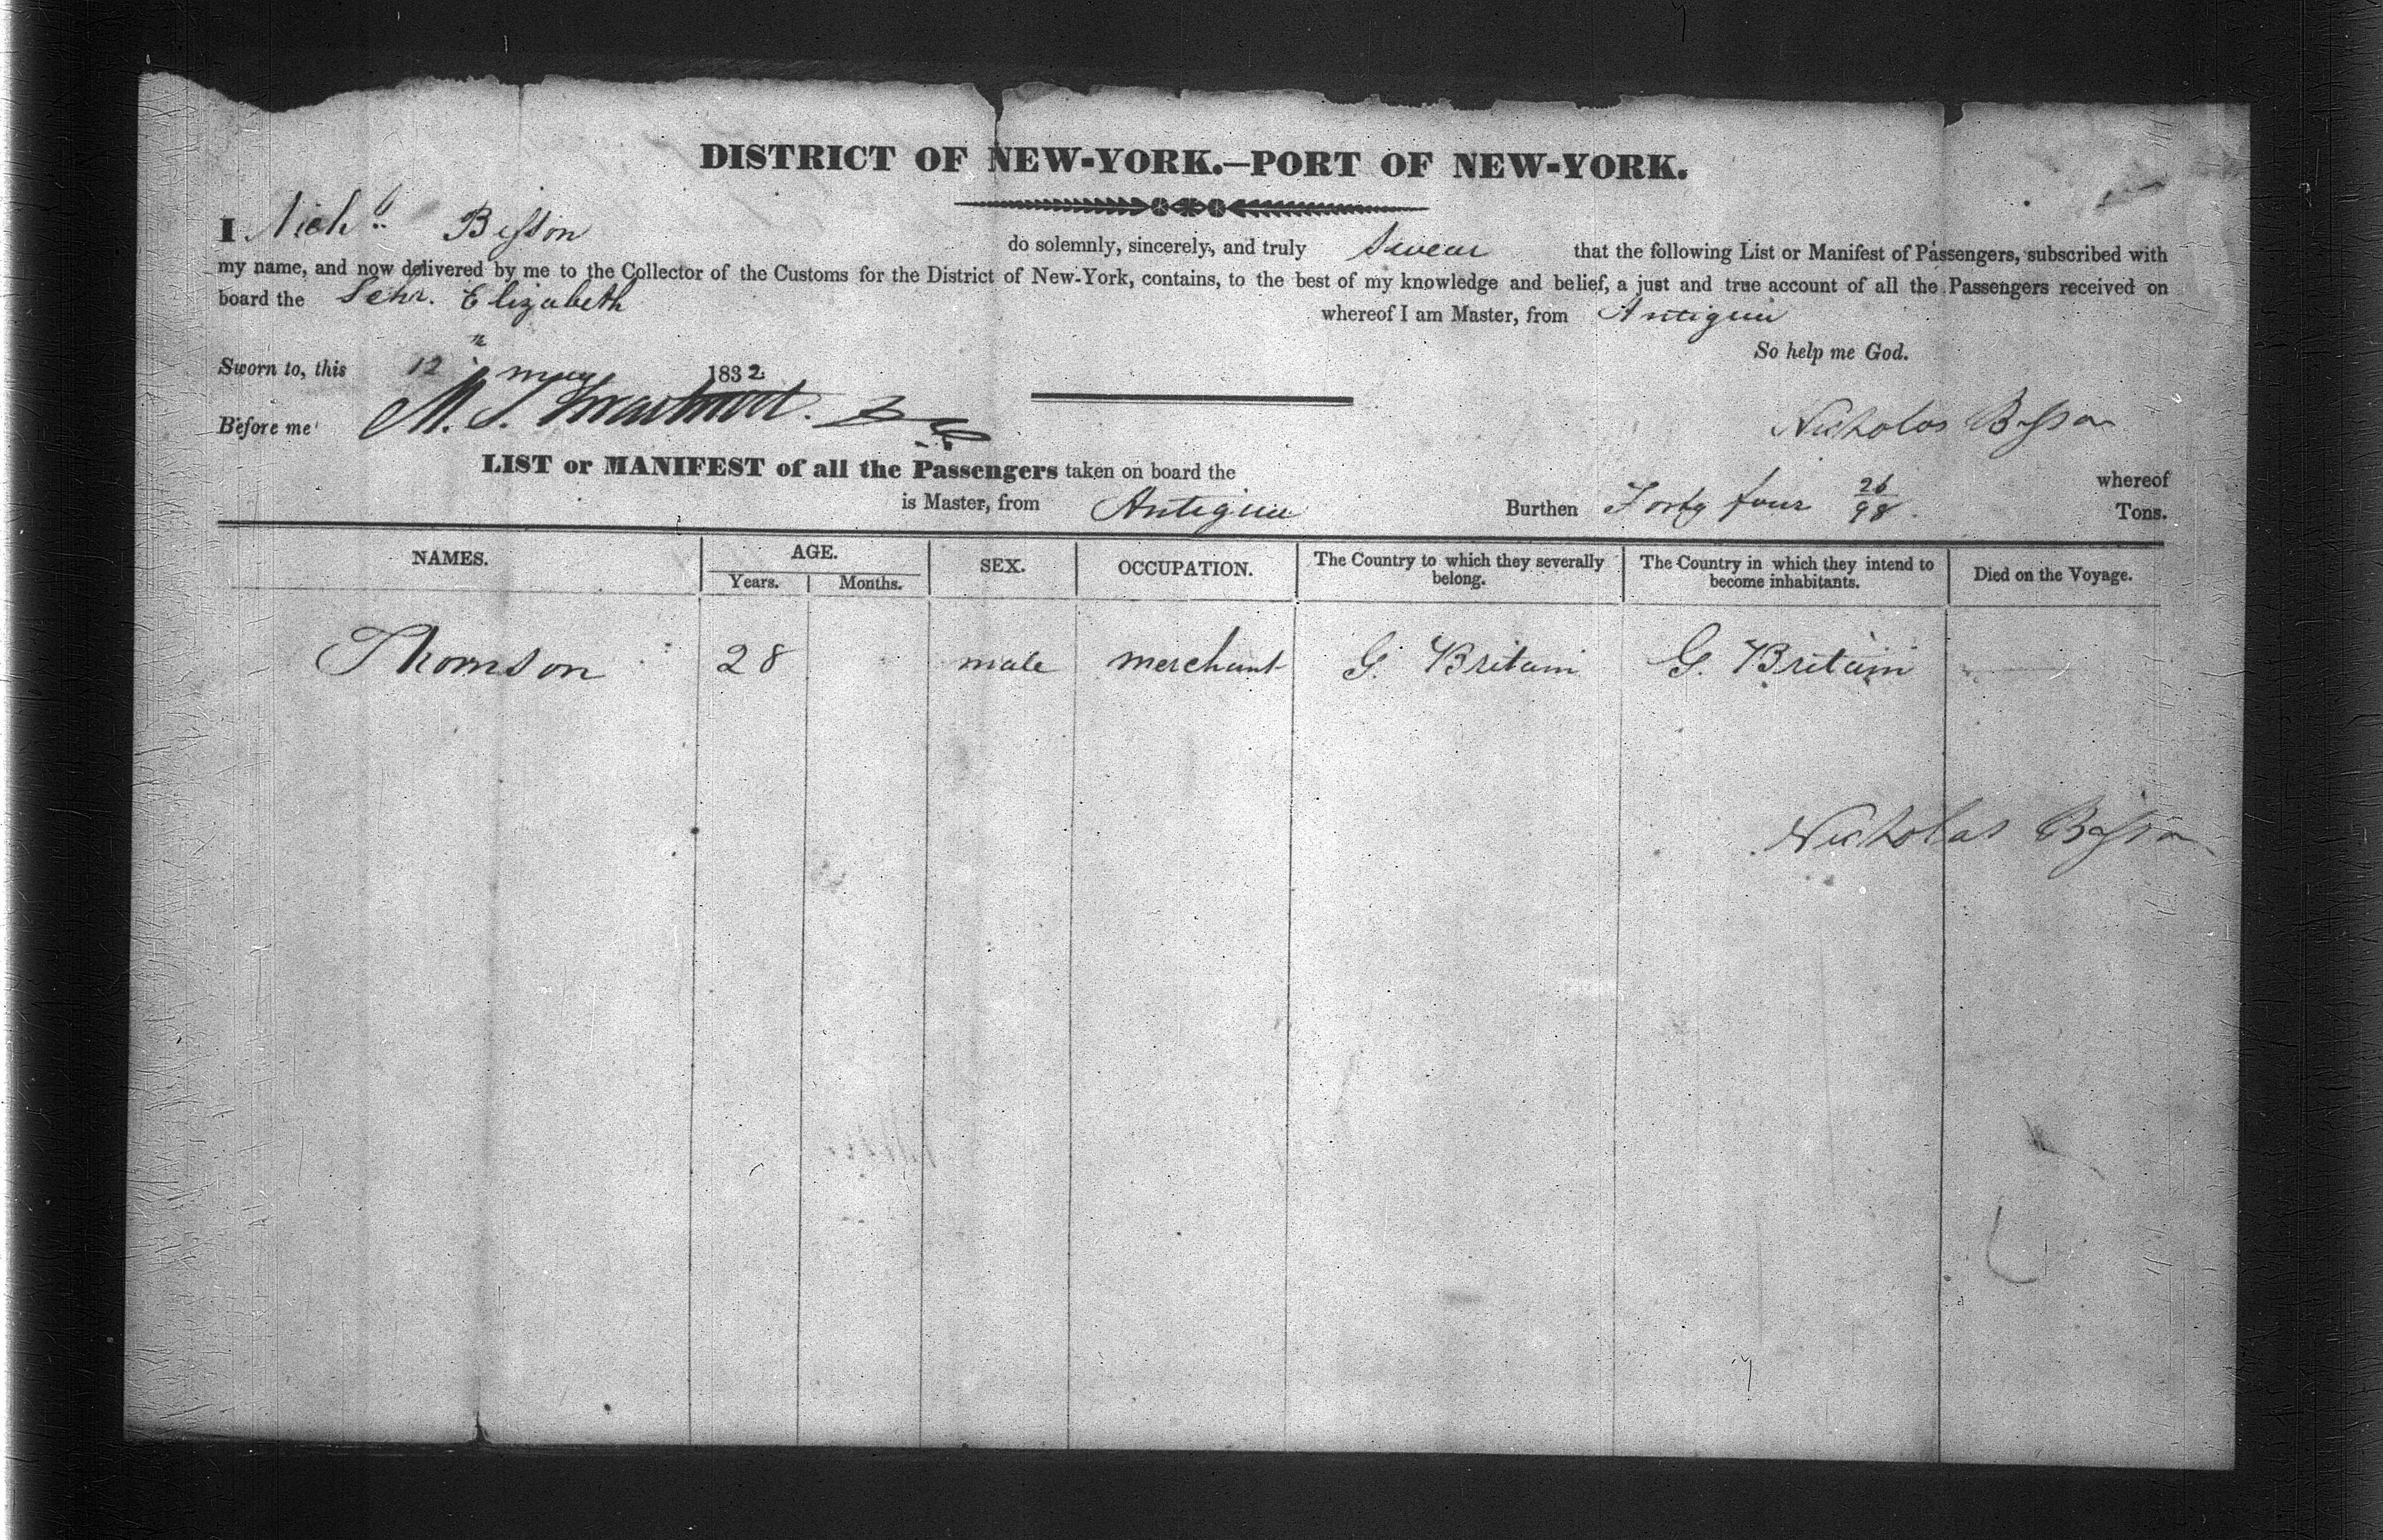 DISTRICT OF NEW-YORK.—PORT OF NEW-YORK.
I Nichs Besson do solemnly, sincerely, and truly Swear that the following List or Manifest of Passengers, subscribed with
my name, and now delivered by me to the Collector of the Customs for the District of New-York, contains, to the best of my knowledge and belief, a just and true account of all the Passengers received on
board the Schr. Elizabeth whereof I am Master, from Antigua
So help me God.
Sworn to, this 12 may 1832
Before me M. S. Nicholas Besson
LIST or MANIFEST of all the Passengers taken on board the whereof
is Master, from Antigua Burthen Forty four 26/98 Tons.
NAMES. AGE. SEX. OCCUPATION. The Country to which they severally belong. The Country in which they intend to become inhabitants. Died on the Voyage.
Years. Months.
Thomson 28 male merchant G. Britain G. Britain
Nicholas Besson